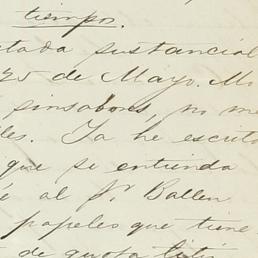 tiempos.
tada sustancial
25 de Mayo. Mo
sinsabores, no me
les. Ya he escrito
que se entienda
é al Sr. Ballen
papeles que tiene
de quota